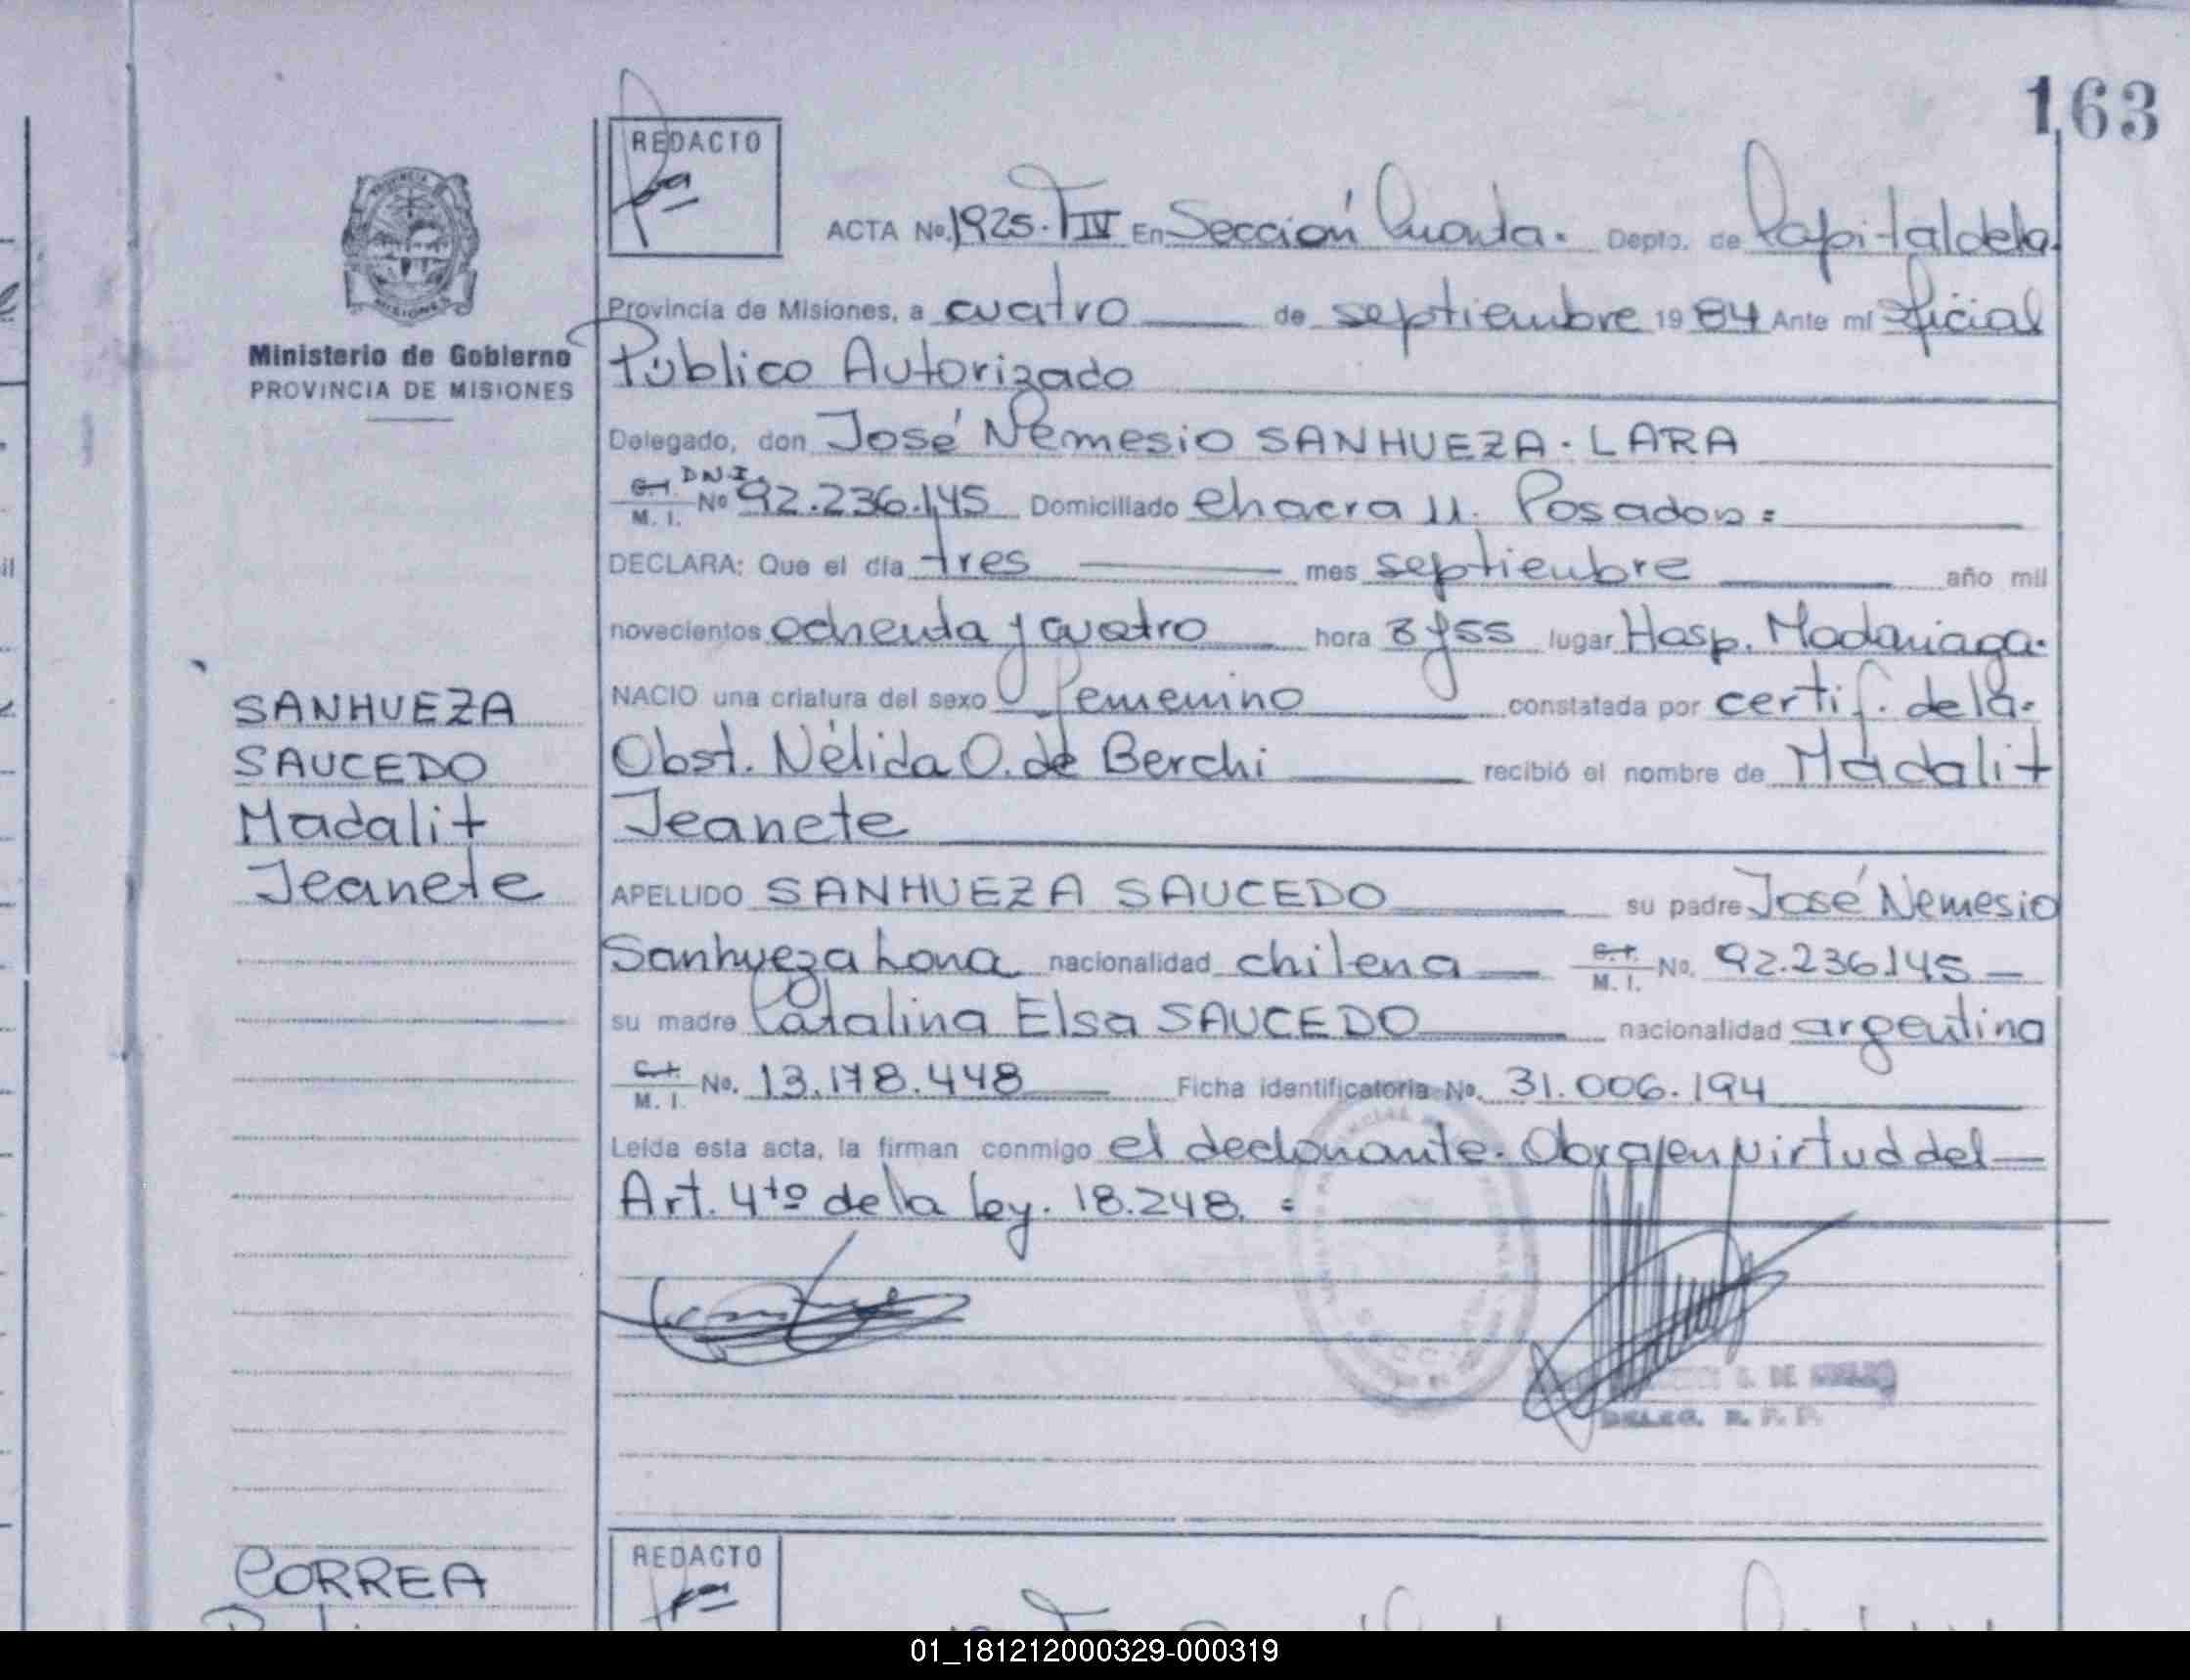 163
REDACTO
ACTA No. 1925. T IV En Sección Cuarta. Depto. de Capital de la
Provincia de Misiones, a cuatro de septiembre 1984 Ante mí Oficial
Ministerio de Gobierno
PROVINCIA DE MISIONES
Público Autorizado
Delegado, don José Nemesio SANHUEZA. LARA
C.I. D.N.I. M. I. No 92.236.145 Domiciliado Chacra 11. Posadas =
DECLARA: Que el día tres mes septiembre año mil
novecientos ochenta y cuatro hora 8 y 55 lugar Hosp. Madariaga.
NACIO una criatura del sexo femenino constatada por certif. de la.
Obst. Nélida O. de Berchi recibió el nombre de Madalit
Jeanete
APELLIDO SANHUEZA SAUCEDO su padre José Nemesio
Sanhueza Lara nacionalidad chilena C.I. M. I. No. 92.236.145
su madre Catalina Elsa SAUCEDO nacionalidad argentina
C.I. M. I. No. 13.178.448 Ficha identificatoria No. 31.006.194
Leída esta acta, la firman conmigo el declarante. Obra en virtud del
Art. 4to de la ley. 18.248. =
DELEG. R. P. P.
SANHUEZA
SAUCEDO
Madalit
Jeanete
CORREA
REDACTO
01_181212000329-000319